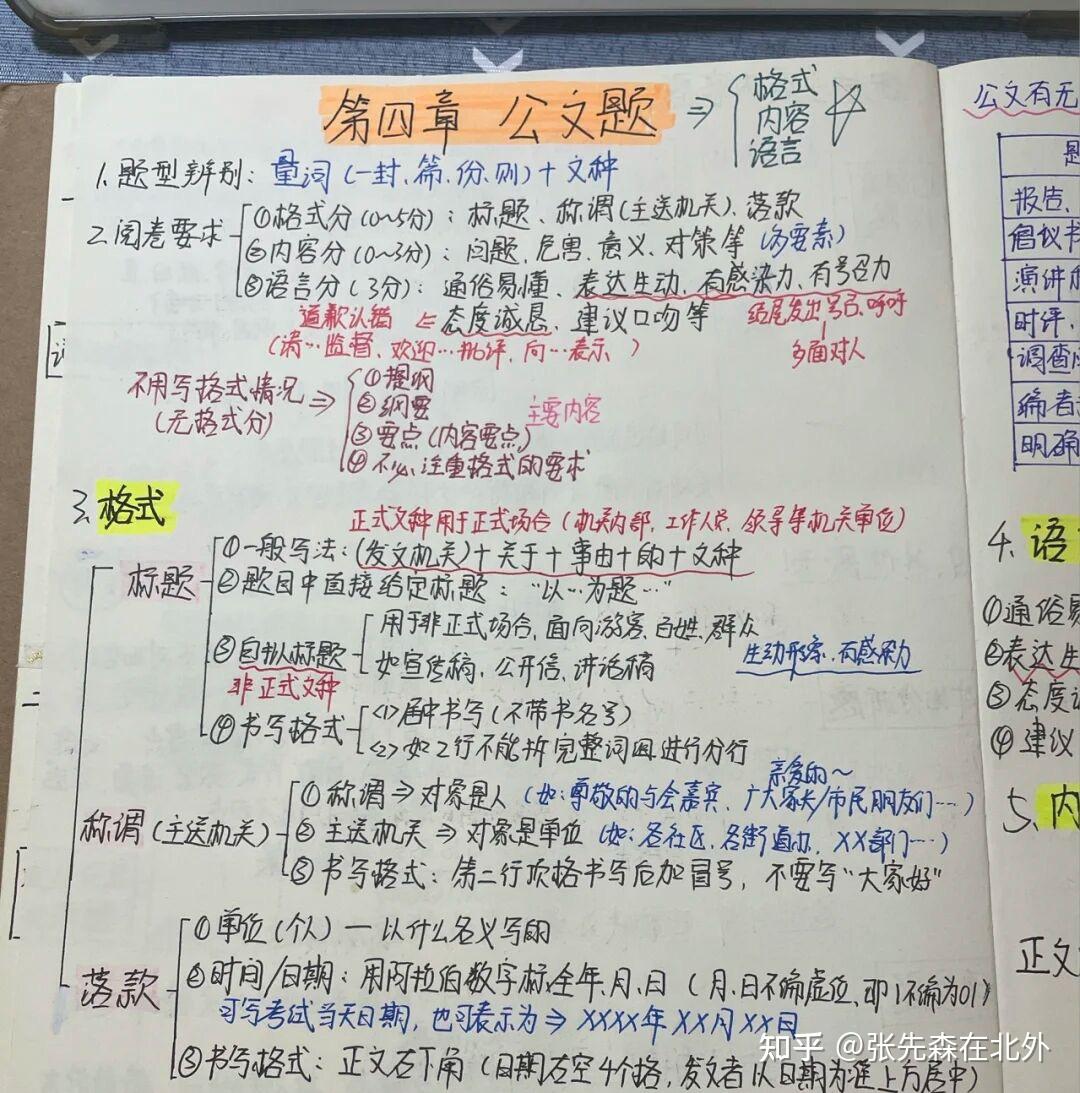 第四章 公文题 ⇒ 格式 内容 语言
1.题型辨别:量词(一封、篇、份、则)+文种
2.阅卷要求
①格式分(0~5分):标题、称谓(主送机关)、落款
②内容分(0~3分):问题、危害、意义、对策等(为要素)
③语言分(3分):通俗易懂、表达生动、有感染力、有号召力
道歉认错 ⇐ 态度诚恳、建议口吻等
结尾发出号召、呼吁
(请…监督、欢迎…批评、向…表示)
多面对人
不用写格式情况 ⇒
(无格式分)
①提纲
②纲要
③要点(内容要点)
主要内容
④不必注重格式的要求
3.格式
正式文种用于正式场合(机关内部、工作人员、领导等机关单位)
标题
①一般写法:(发文机关)+关于+事由+的+文种
②题目中直接给定标题:“以…为题…”
③自拟标题
非正式文种
用于非正式场合,面向游客、百姓、群众
如宣传稿、公开信、讲话稿
生动形象、有感染力
④书写格式
<1>居中书写(不带书名号)
<2>如2行不能拆完整词组进行分行
称谓(主送机关)
亲爱的~
①称谓⇒对象是人(如:尊敬的与会嘉宾、广大家长/市民朋友们…)
②主送机关⇒对象是单位(如:各社区、各街道办、XX部门…)
③书写格式:第二行顶格书写后加冒号,不要写“大家好”
落款
①单位(个人)—以什么名义写的
②时间/日期:用阿拉伯数字标全年、月、日(月、日不编虚位,即1不编为01)
可写考试当天日期,也可表示为⇒XXXX年XX月XX日
③书写格式:正文右下角(日期右空4个格,发文者以日期为准上方居中)
公文有无
题
报告、
倡议书
演讲
时评、
调查
编者
明确
4.语
①通俗易
②表达生
③态度
④建议
5.内
正文
知乎 @张先森在北外